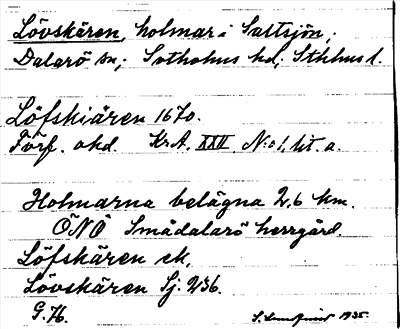 Lövskären, holmar i Saltsjön,
Dalarö sn; Sotholms hd; Sthlms l.
Löfskiären 1670.
Förf. okd. Kr.A. XXII, N:o 1, lit. a.
Holmarna belägna 2,6 km.
ÖNÖ Smådalarö herrgård.
Löfskären ek.
Lövskären Sj. 236.
G.H.
S. Lundqvist 1935.